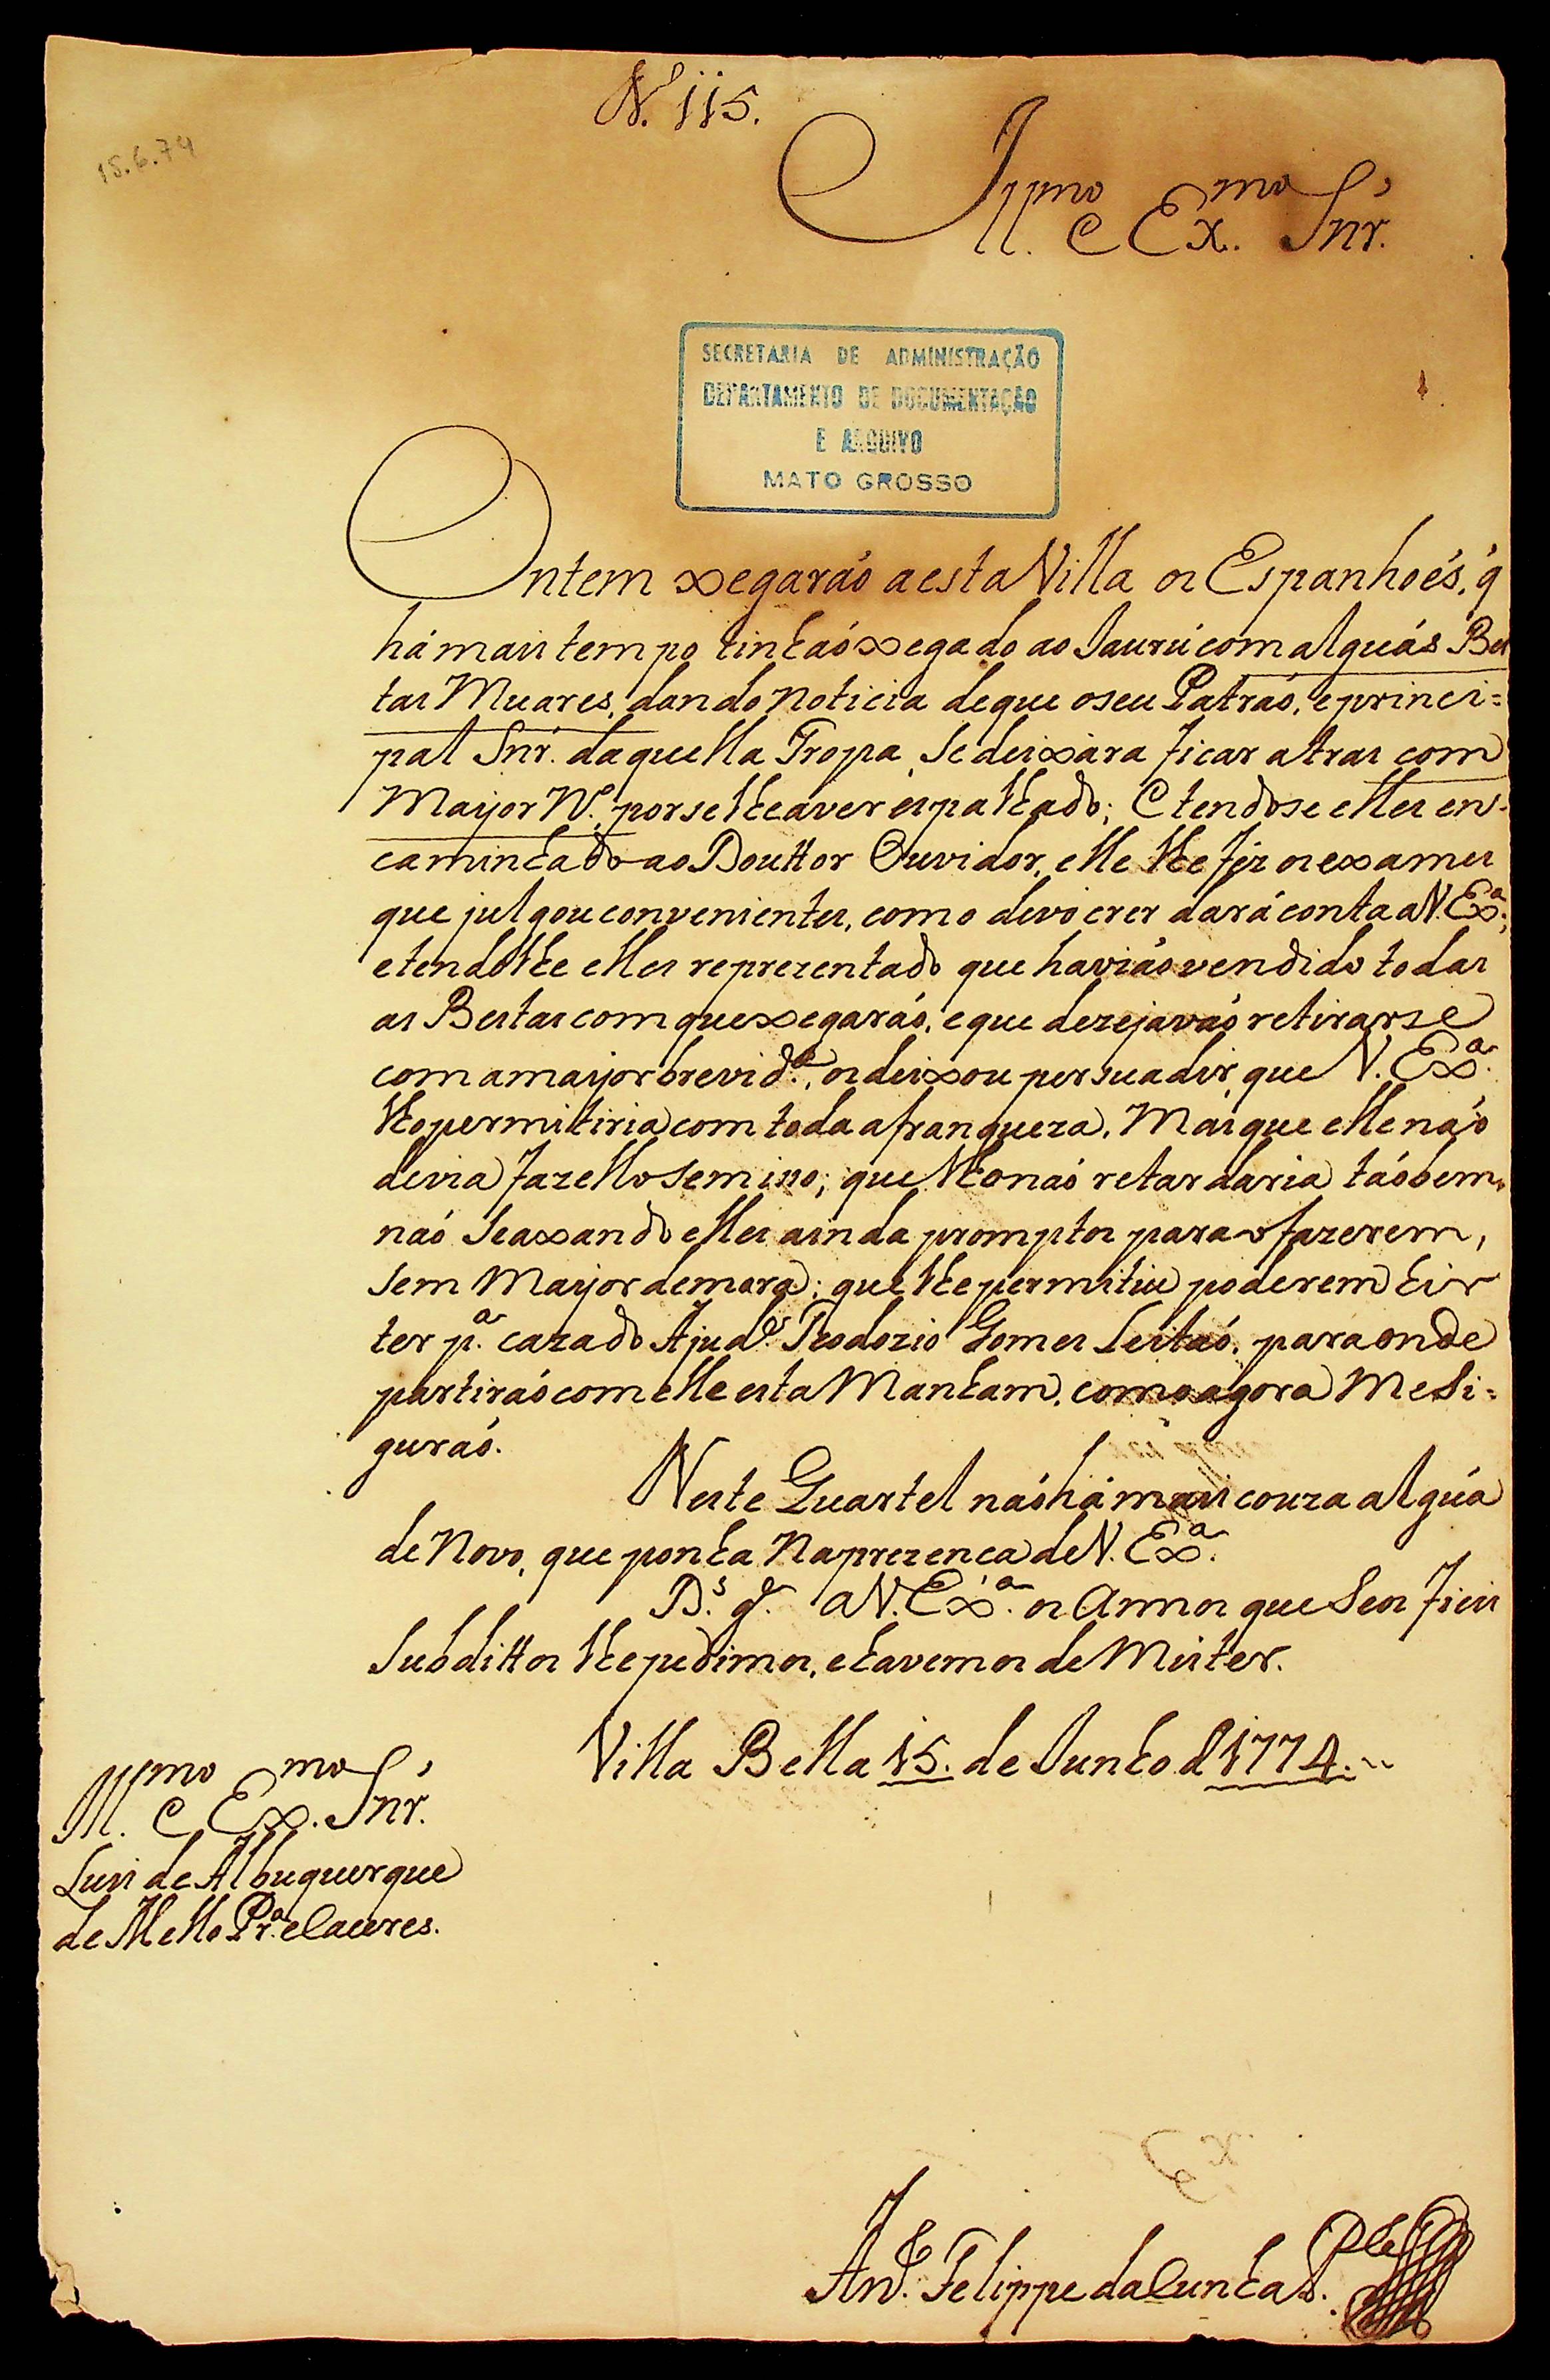 N. 115.
15.6.74
Ill.mo e Ex.mo Snr.
SECRETARIA DE ADMINISTRAÇÃO
DEPARTAMENTO DE DOCUMENTAÇÃO
E ARQUIVO
MATO GROSSO
Ontem xegaraó a esta Villa os Espanhoés, q̃
há mais tempo tinhaó xegado ao Jaurú com alguás Bes
tas Muares, dando noticia de que o seu Patraó, e princi=
pal Snr. daquella Tropa, se deixára ficar atras com
Mayor N.º, por se lhe aver espalhado; E tendose elles en-
caminhado ao Douttor Ouvidor, elle lhe fés os exames
que julgou convenientes, como devo crer dará conta a V. Ex.ª;
e tendolhe elles reprezentado que haviaó vendido todas
as Bestas com que xegaraó, e que dezejavaó retirarse
com a mayor brevid.e, os deixou persuadir, que V. Ex.ª
lho permitiria com toda a franqueza, Más que elle naó
devia fazello sem isso; que lho naó retardaria taóbem,
naó se axando elles ainda promptos para o fazerem,
sem Mayor demora; que lhe permitiu poderem hir
ter p.ª caza do Ajud.e Teodozio Gomes Leitaó, para onde
partiraó com elle esta Manham, como agora me si=
guraó.
Neste Quartel naó há mais couza algúa
de Novo, que ponha na prezença de V. Ex.ª
D.s g.e a V. Ex.ª os annos que seos fieis
subdittos lhe pedimos, e havemos de Mister.
Villa Bella 15. de Junho d 1774.
Ill.mo e Ex.mo Snr.
Luis de Albuquerque
de Mello Pr.ª e Caceres.
Ant.º Felippe da Cunha P.